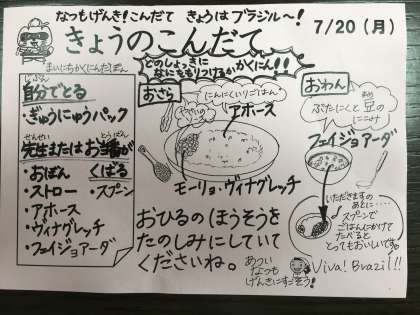 なつもげんき!こんだて きょうはブラジル〜!
7/20(月)
きょうのこんだて
どのしょっきに
なにをもりつけるかかくにん!!
まいにちかくにんだぽん
じぶん
自分でとる
・ぎゅうにゅうパック
せんせい とうばん
先生またはお当番が
くばる
・おぼん
・ストロー ・スプーン
・アホース
・ヴィナグレッチ
・フェイジョアーダ
おさら
にんにくいりごはん
アホース
やさいの
モーリョ・ヴィナグレッチ
おわん
まめ
ぶたにくと豆の
にこみ
フェイジョアーダ
いただきますの
あとに・・・
スプーンで
ごはんにかけて
たべると
とってもおいしいです。
おひるのほうそうを
たのしみにしていて
くださいね。
あつい
なつも
げんきにすごそう!
Viva! Brazil!!